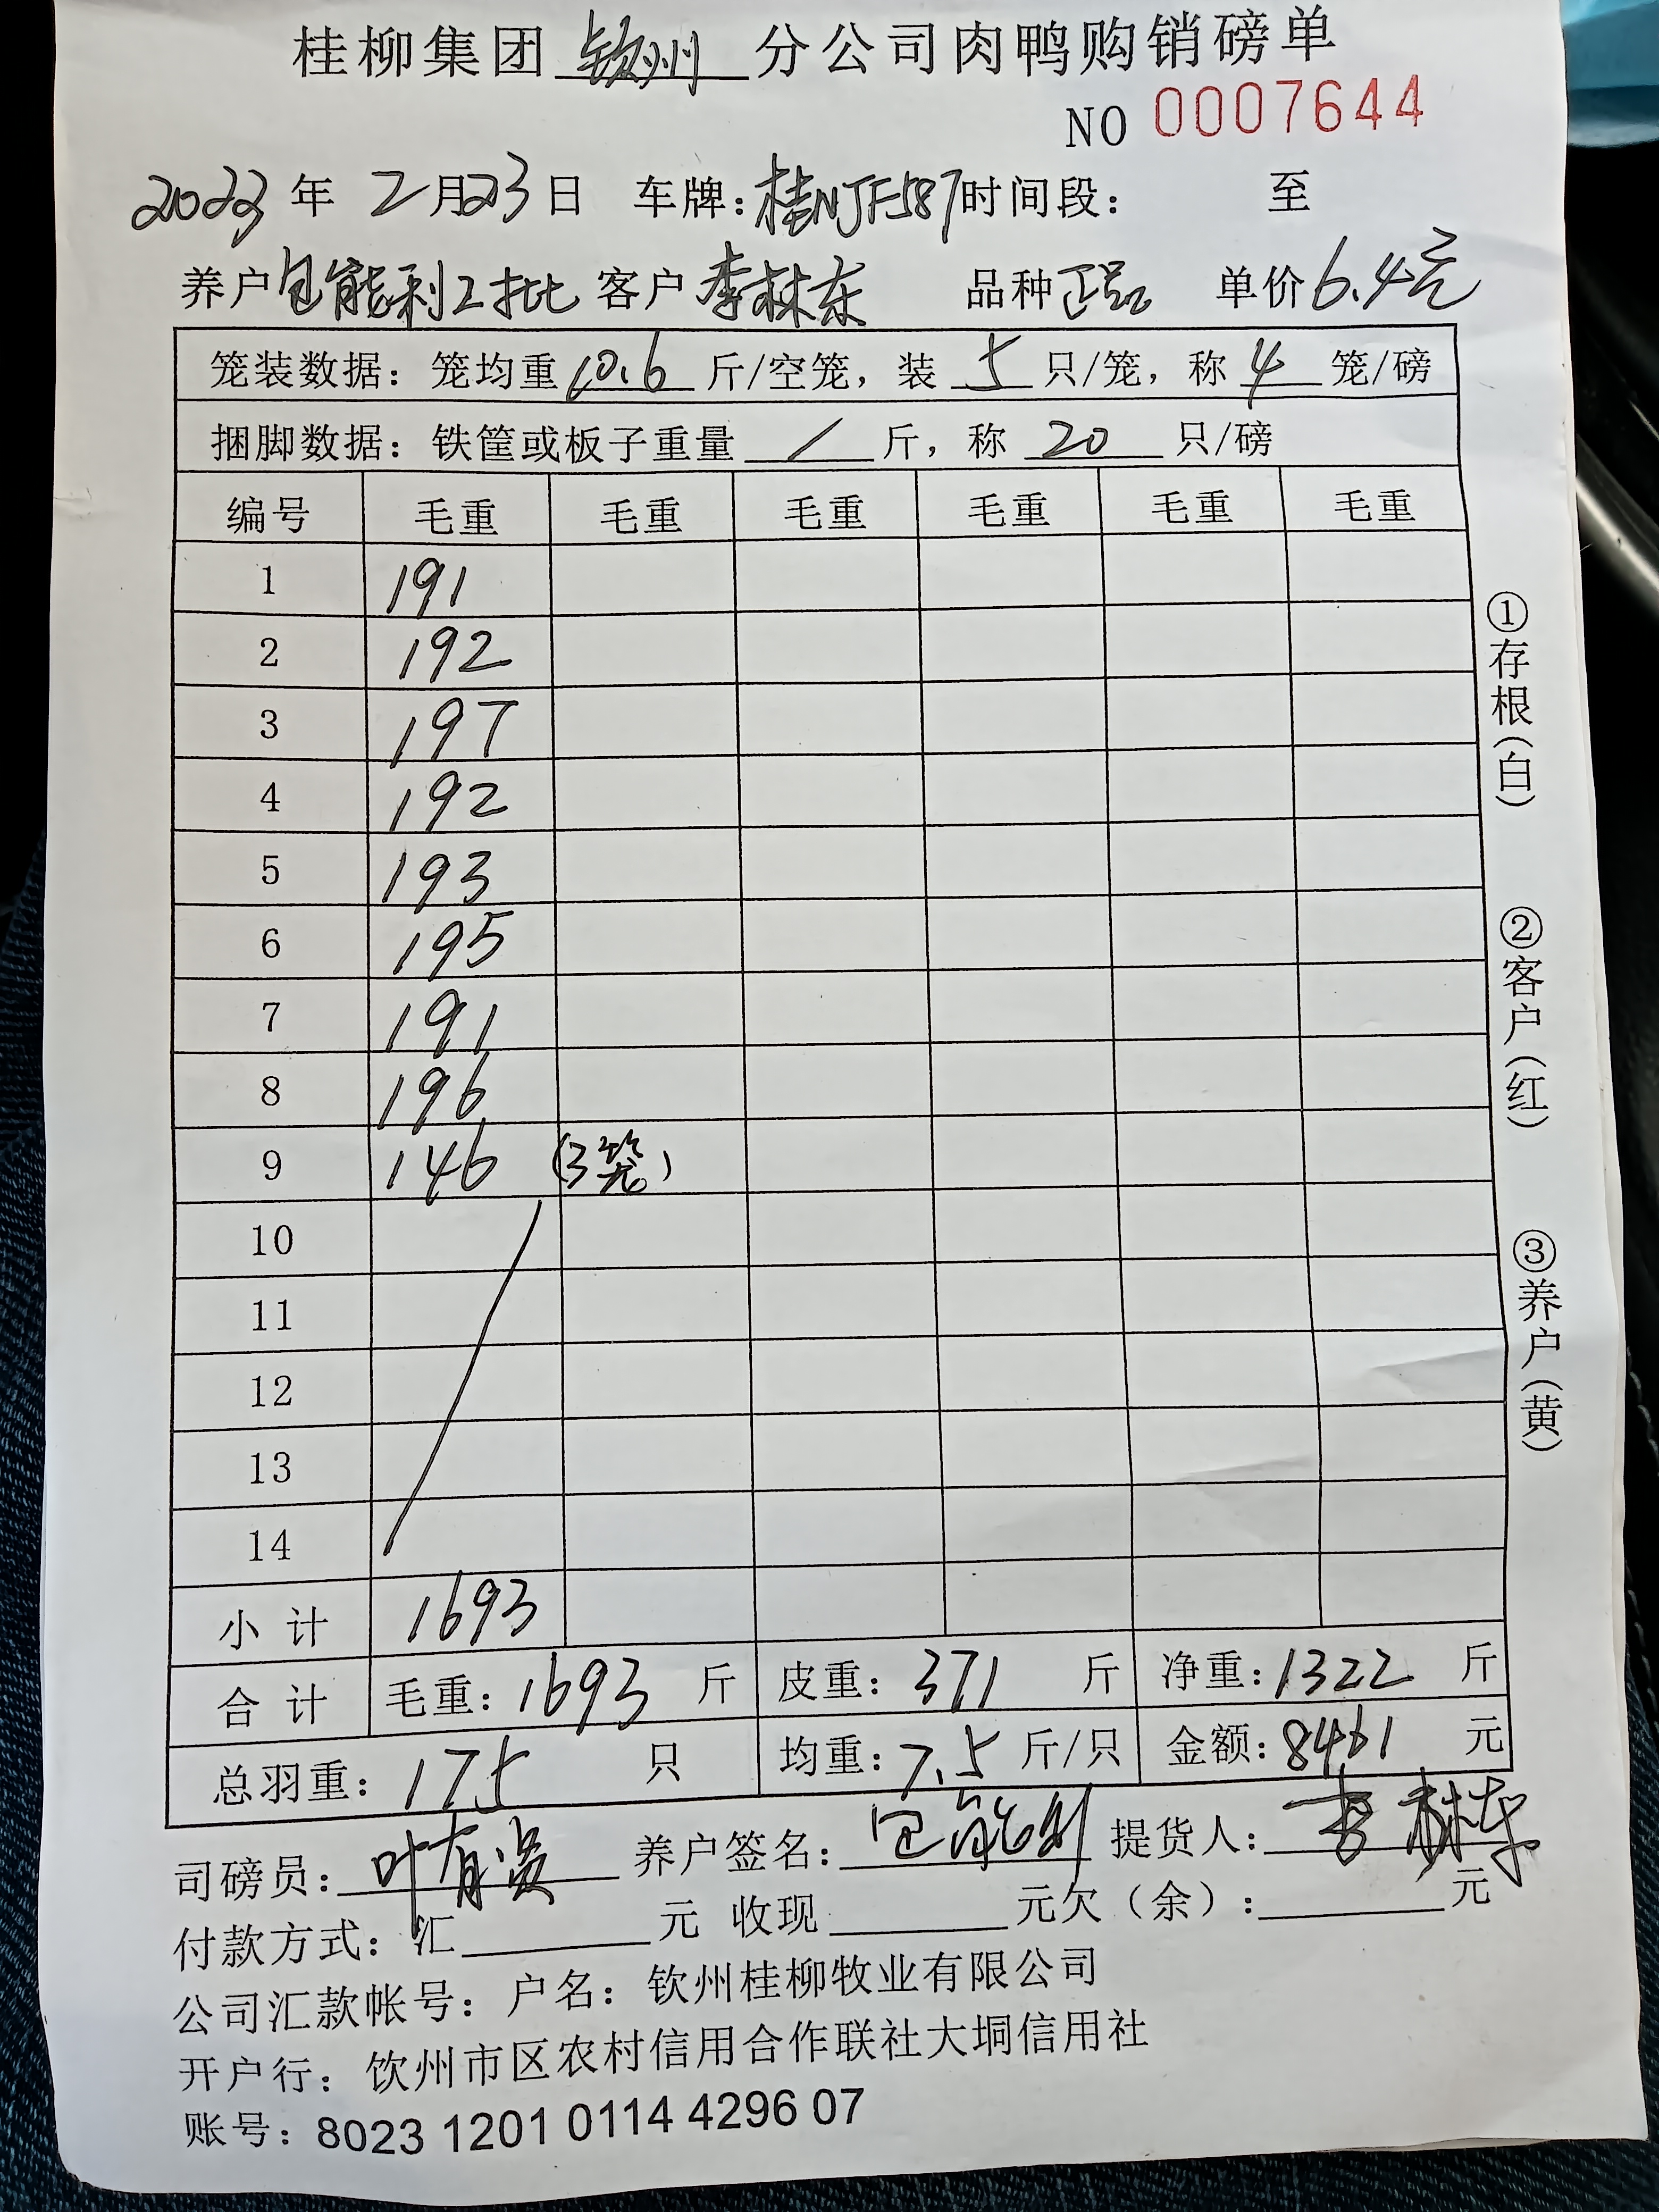 桂柳集团 钦州 分公司肉鸭购销磅单
NO 0007644
2023 年 2 月 23 日 车牌：桂NJF587 时间段： 至
养户 包能利2批 客户 李林东 品种 正品 单价 6.4元
笼装数据：笼均重 10.6 斤/空笼，装 5 只/笼，称 4 笼/磅
捆脚数据：铁筐或板子重量 / 斤，称 20 只/磅
编号 毛重 毛重 毛重 毛重 毛重 毛重
1 191
2 192
3 197
4 192
5 193
6 195
7 191
8 196
9 146 (3笼)
10
11
12
13
14
小 计 1693
合 计 毛重：1693 斤 皮重：371 斤 净重：1322 斤
总羽重：175 只 均重：7.5 斤/只 金额：8461 元
司磅员：叶有 养户签名：包能利 提货人：李林东
付款方式：汇 元 收现 元欠（余）： 元
公司汇款帐号：户名：钦州桂柳牧业有限公司
开户行：钦州市区农村信用合作联社大垌信用社
账号：8023 1201 0114 4296 07
①存根（白）
②客户（红）
③养户（黄）